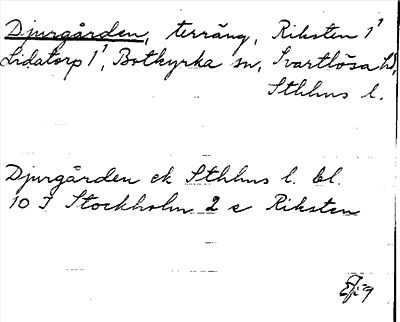 Djurgården, terräng, Riksten 1¹
Lidatorp 1¹, Botkyrka sn, Svartlösa hd,
Sthlms l.
Djurgården ek Sthlms l. bl.
10 I Stockholm 2 e Riksten